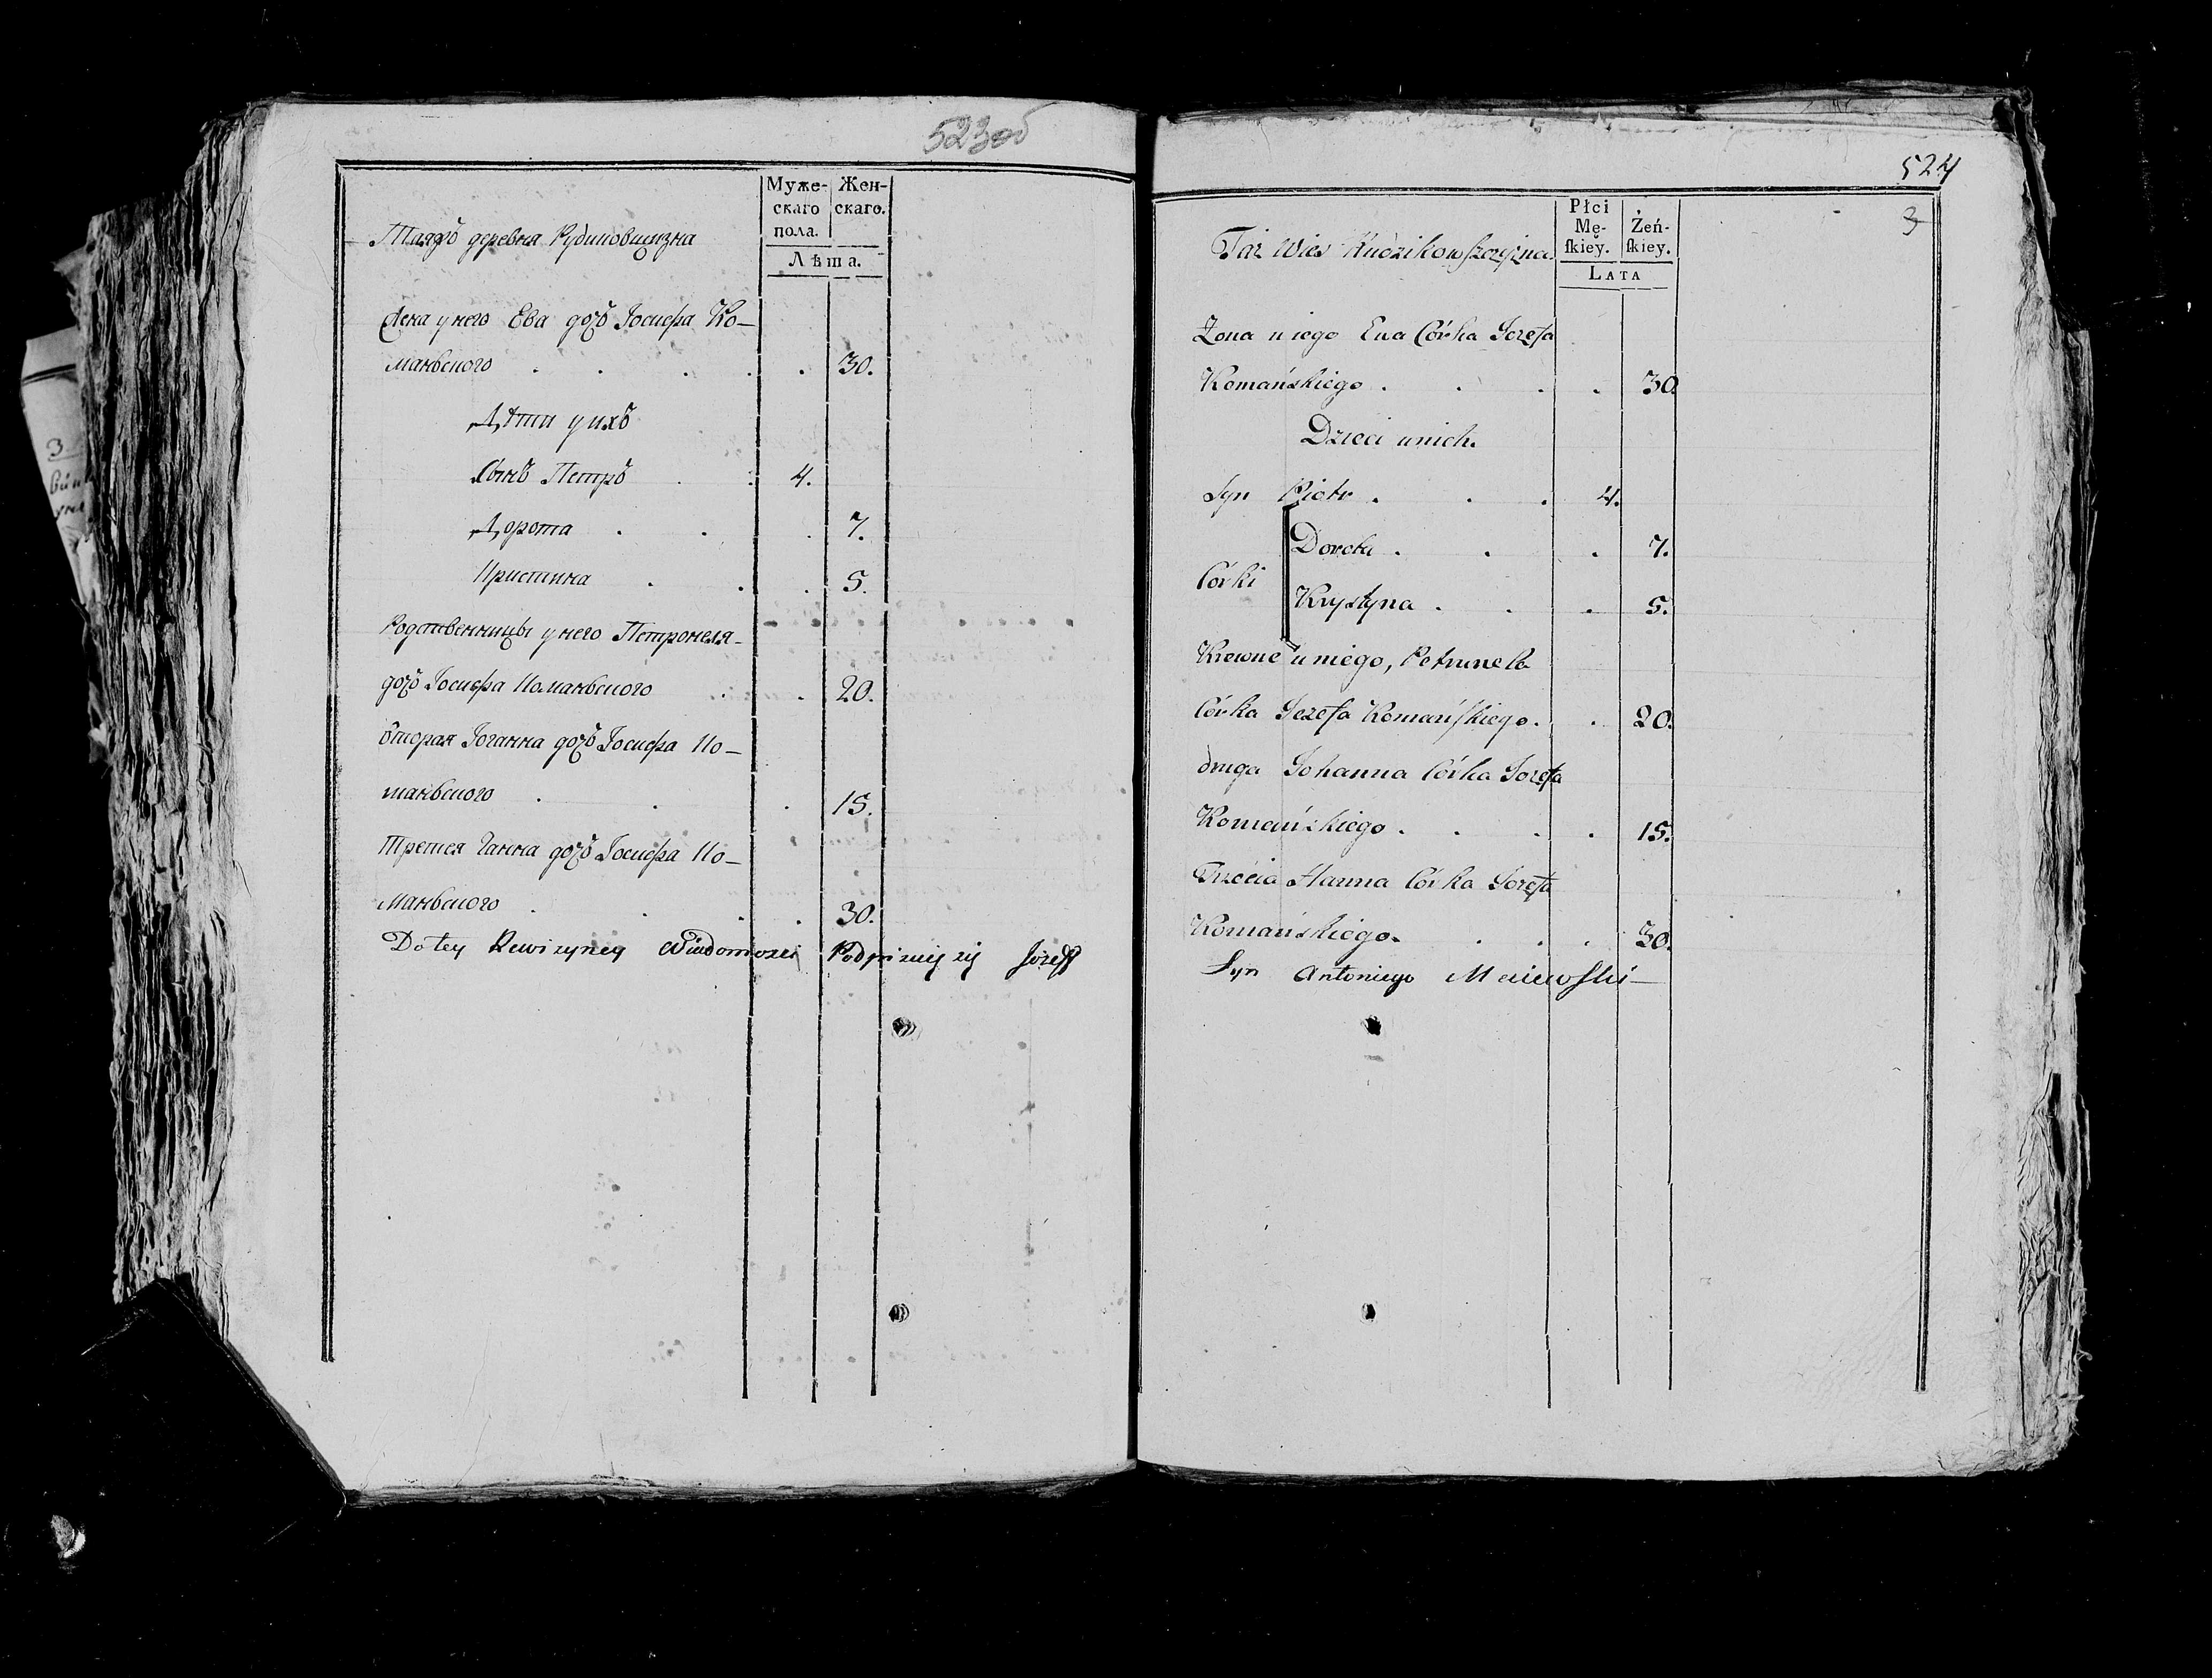 523об
Муже- Жен-
скаго скаго.
пола.
Лѣта.
Таяжъ деревня
Жена у него Ева дочь Іосифа Ко-
маньского . . . . . 30.
Дѣти у ихъ
Сынъ Петръ . . 4.
Дорота . . . 7.
Кристина . . . 5.
Родственницы у него Петронеля
дочь Іосифа Команьского . . 20.
Вторая Іоганна дочь Іосифа Ко-
маньского . . . 15.
Третея Ганна дочь Іосифа Ко-
маньского . . . . 30.
Do tey Rewizyney Wiadomosci Podpisuję się Józeff
524
3
Płci
Mę- Żeń-
ſkiey. ſkiey.
LATA
Taż Wieś
Żona u iego Ewa Córka Jozefa
Komańskiego . . . . 30
Dzieci u nich.
Syn Piotr . . . 4.
Dorota . . . 7.
Córki
Krystyna . . . 5.
Krewne u niego, Petrunela
Córka Jozefa Komańſkiego . . 20.
druga Johanna Córka Jozefa
Komańskiego . . . . 15.
Trzecia Hanna Córka Jozefa
Komańskiego . . . . 30.
Syn Antoniego